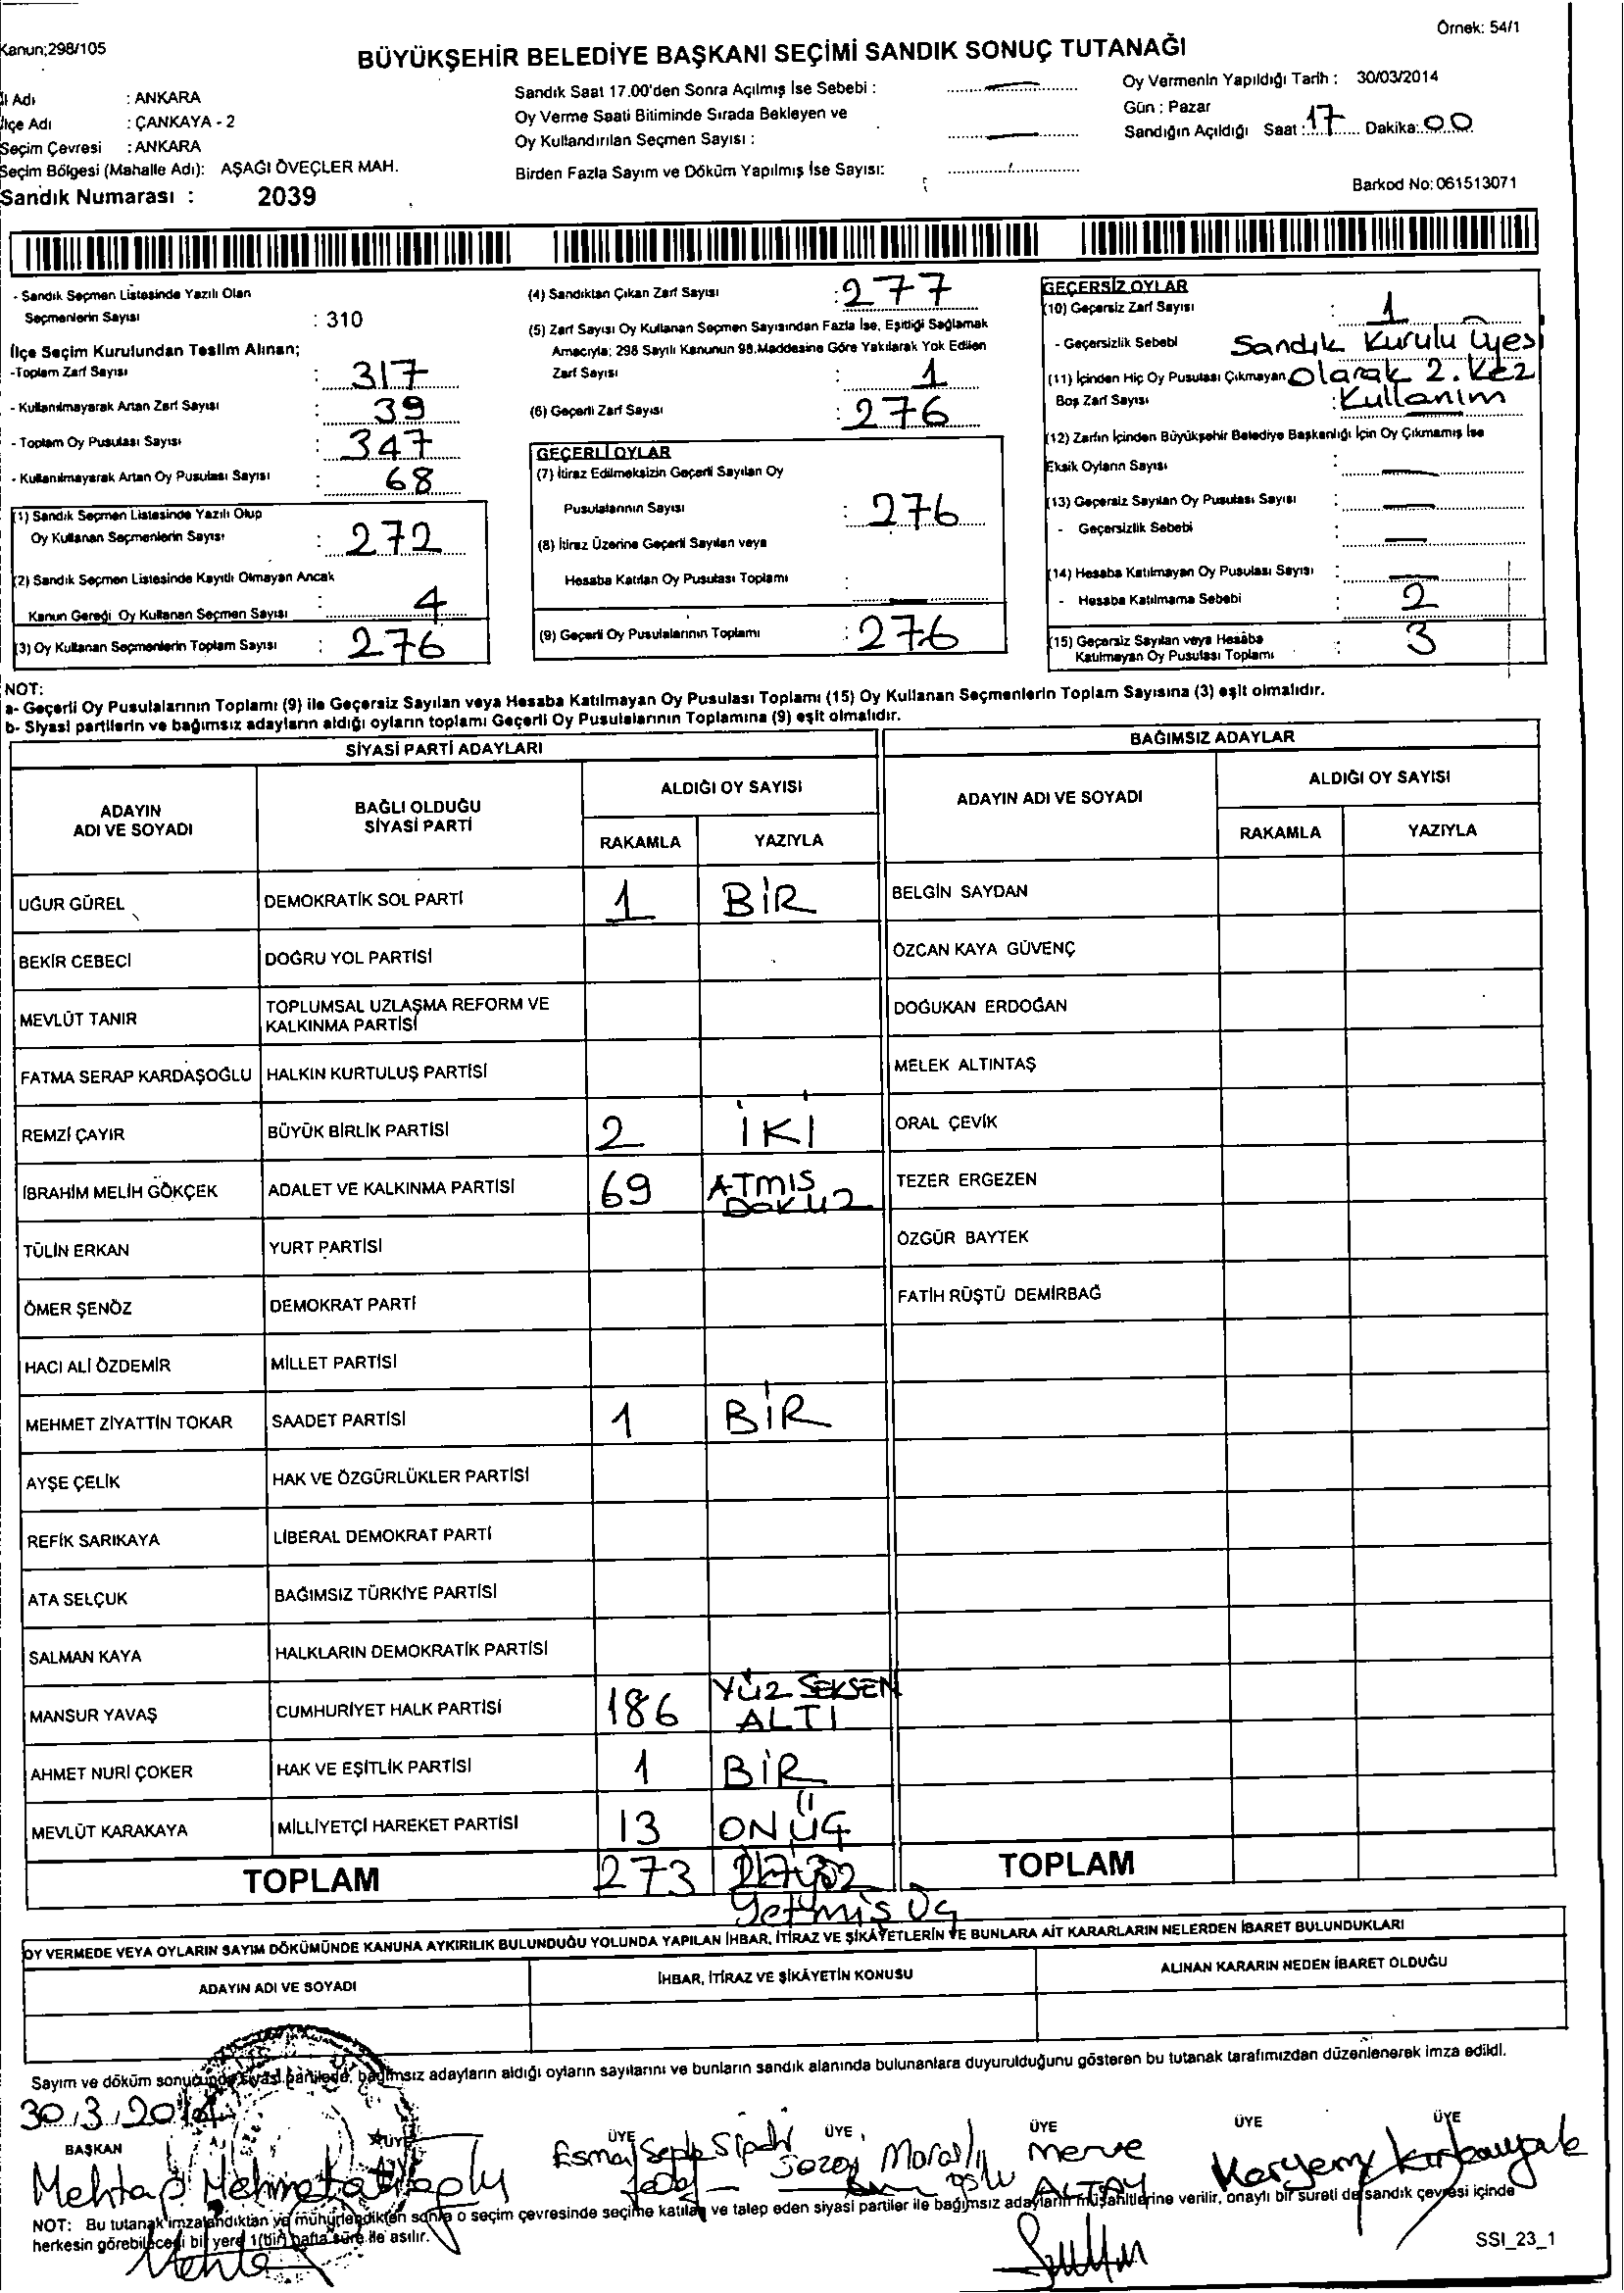 Kanun;298/105
Örnek: 54/1
BÜYÜKŞEHİR BELEDİYE BAŞKANI SEÇİMİ SANDIK SONUÇ TUTANAĞI
İl Adı : ANKARA
İlçe Adı : ÇANKAYA - 2
Seçim Çevresi : ANKARA
Seçim Bölgesi (Mahalle Adı): AŞAĞI ÖVEÇLER MAH.
Sandık Numarası : 2039
Sandık Saat 17.00'den Sonra Açılmış İse Sebebi :
Oy Verme Saati Bitiminde Sırada Bekleyen ve
Oy Kullandırılan Seçmen Sayısı :
Birden Fazla Sayım ve Döküm Yapılmış İse Sayısı:
Oy Vermenin Yapıldığı Tarih : 30/03/2014
Gün : Pazar
Sandığın Açıldığı Saat : 17 Dakika: 00
Barkod No: 061513071
- Sandık Seçmen Listesinde Yazılı Olan
Seçmenlerin Sayısı : 310
İlçe Seçim Kurulundan Teslim Alınan;
-Toplam Zarf Sayısı : 317
- Kullanılmayarak Artan Zarf Sayısı : 39
- Toplam Oy Pusulası Sayısı : 347
- Kullanılmayarak Artan Oy Pusulası Sayısı : 68
(1) Sandık Seçmen Listesinde Yazılı Olup
Oy Kullanan Seçmenlerin Sayısı : 272
(2) Sandık Seçmen Listesinde Kayıtlı Olmayan Ancak
Kanun Gereği Oy Kullanan Seçmen Sayısı : 4
(3) Oy Kullanan Seçmenlerin Toplam Sayısı : 276
(4) Sandıktan Çıkan Zarf Sayısı : 277
(5) Zarf Sayısı Oy Kullanan Seçmen Sayısından Fazla İse, Eşitliği Sağlamak
Amacıyla; 298 Sayılı Kanunun 98.Maddesine Göre Yakılarak Yok Edilen
Zarf Sayısı : 1
(6) Geçerli Zarf Sayısı : 276
GEÇERLİ OYLAR
(7) İtiraz Edilmeksizin Geçerli Sayılan Oy
Pusulalarının Sayısı : 276
(8) İtiraz Üzerine Geçerli Sayılan veya
Hesaba Katılan Oy Pusulası Toplamı :
(9) Geçerli Oy Pusulalarının Toplamı : 276
GEÇERSİZ OYLAR
(10) Geçersiz Zarf Sayısı : 1
- Geçersizlik Sebebi Sandık Kurulu üyesi
(11) İçinden Hiç Oy Pusulası Çıkmayan olarak 2. kez
Boş Zarf Sayısı : Kullanım
(12) Zarfın İçinden Büyükşehir Belediye Başkanlığı İçin Oy Çıkmamış İse
Eksik Oyların Sayısı :
(13) Geçersiz Sayılan Oy Pusulası Sayısı :
- Geçersizlik Sebebi :
(14) Hesaba Katılmayan Oy Pusulası Sayısı :
- Hesaba Katılmama Sebebi : 2
(15) Geçersiz Sayılan veya Hesaba : 3
Katılmayan Oy Pusulası Toplamı
NOT:
a- Geçerli Oy Pusulalarının Toplamı (9) ile Geçersiz Sayılan veya Hesaba Katılmayan Oy Pusulası Toplamı (15) Oy Kullanan Seçmenlerin Toplam Sayısına (3) eşit olmalıdır.
b- Siyasi partilerin ve bağımsız adayların aldığı oyların toplamı Geçerli Oy Pusulalarının Toplamına (9) eşit olmalıdır.
SİYASİ PARTİ ADAYLARI
BAĞIMSIZ ADAYLAR
ADAYIN
ADI VE SOYADI
BAĞLI OLDUĞU
SİYASİ PARTİ
ALDIĞI OY SAYISI
RAKAMLA YAZIYLA
ADAYIN ADI VE SOYADI
ALDIĞI OY SAYISI
RAKAMLA YAZIYLA
UĞUR GÜREL DEMOKRATİK SOL PARTİ 1 BİR BELGİN SAYDAN
BEKİR CEBECİ DOĞRU YOL PARTİSİ ÖZCAN KAYA GÜVENÇ
MEVLÜT TANIR TOPLUMSAL UZLAŞMA REFORM VE
KALKINMA PARTİSİ DOĞUKAN ERDOĞAN
FATMA SERAP KARDAŞOĞLU HALKIN KURTULUŞ PARTİSİ MELEK ALTINTAŞ
REMZİ ÇAYIR BÜYÜK BİRLİK PARTİSİ 2 İKİ ORAL ÇEVİK
İBRAHİM MELİH GÖKÇEK ADALET VE KALKINMA PARTİSİ 69 ATMIŞ
DOKUZ TEZER ERGEZEN
TÜLİN ERKAN YURT PARTİSİ ÖZGÜR BAYTEK
ÖMER ŞENÖZ DEMOKRAT PARTİ FATİH RÜŞTÜ DEMİRBAĞ
HACI ALİ ÖZDEMİR MİLLET PARTİSİ
MEHMET ZİYATTİN TOKAR SAADET PARTİSİ 1 BİR
AYŞE ÇELİK HAK VE ÖZGÜRLÜKLER PARTİSİ
REFİK SARIKAYA LİBERAL DEMOKRAT PARTİ
ATA SELÇUK BAĞIMSIZ TÜRKİYE PARTİSİ
SALMAN KAYA HALKLARIN DEMOKRATİK PARTİSİ
MANSUR YAVAŞ CUMHURİYET HALK PARTİSİ 186 YÜZ SEKSEN
ALTI
AHMET NURİ ÇOKER HAK VE EŞİTLİK PARTİSİ 1 BİR
MEVLÜT KARAKAYA MİLLİYETÇİ HAREKET PARTİSİ 13 ONÜÇ
TOPLAM 273
Yetmiş Üç
TOPLAM
OY VERMEDE VEYA OYLARIN SAYIM DÖKÜMÜNDE KANUNA AYKIRILIK BULUNDUĞU YOLUNDA YAPILAN İHBAR, İTİRAZ VE ŞİKÂYETLERİN VE BUNLARA AİT KARARLARIN NELERDEN İBARET BULUNDUKLARI
ADAYIN ADI VE SOYADI
İHBAR, İTİRAZ VE ŞİKÂYETİN KONUSU
ALINAN KARARIN NEDEN İBARET OLDUĞU
Sayım ve döküm sonucunda siyasi partilerin, bağımsız adayların aldığı oyların sayılarını ve bunların sandık alanında bulunanlara duyurulduğunu gösteren bu tutanak tarafımızdan düzenlenerek imza edildi.
30.3.2014
BAŞKAN ÜYE ÜYE ÜYE ÜYE ÜYE ÜYE
Mehtap
Esma
Sipahi
Merve
ALTAY
Meryem
NOT: Bu tutanak imzalandıktan ve mühürlendikten sonra o seçim çevresinde seçime katılan ve talep eden siyasi partiler ile bağımsız adayların müşahitlerine verilir, onaylı bir sureti de sandık çevresi içinde
herkesin görebileceği bir yere 1(bir) hafta süre ile asılır.
SSI_23_1